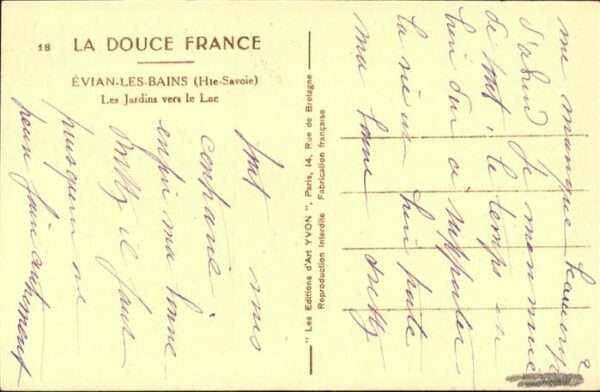 18 LA DOUCE FRANCE
ÉVIAN-LES-BAINS (Hte-Savoie)
Les Jardins vers le Lac
" Les Editions d'Art YVON ", Paris, 14, Rue de Bretagne
Reproduction Interdite Fabrication française
me manque beaucoup
d'abord Je m'ennuie
de tout le temps en
bien dur à supporter
la vie us
ma bonne
tout
enfin ma bonne
il faut
puisqu'on ne
peut faire autrement